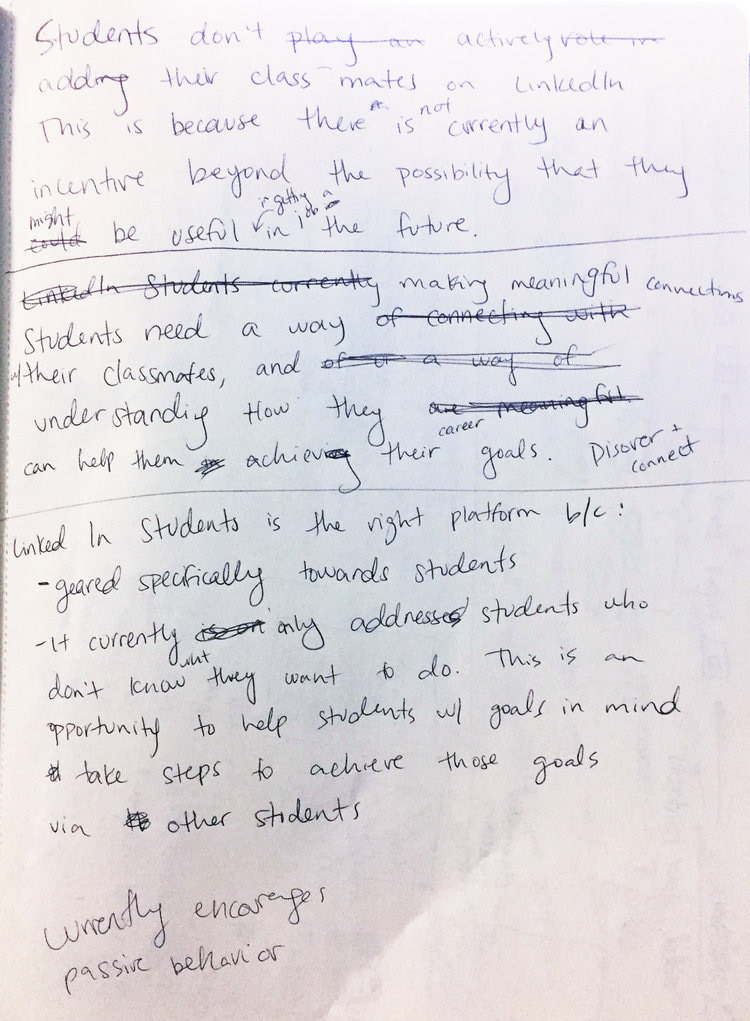 Students don't play an actively role in
adding their class-mates on LinkedIn
This is because there is not currently an
incentive beyond the possibility that they
might could be useful in getting a job in the future.
LinkedIn Students currently making meaningful connections
Students need a way of connecting with
w/ their classmates, and of a way of
understanding How they are meaningful.
can help them achieving their career goals. Disover + connect
Linked In Students is the right platform b/c:
- geared specifically towards students
- It currently only addresses students who
don't know what they want to do. This is an
opportunity to help students w/ goals in mind
take steps to achieve those goals
via other students
Currently encourages
passive behavior